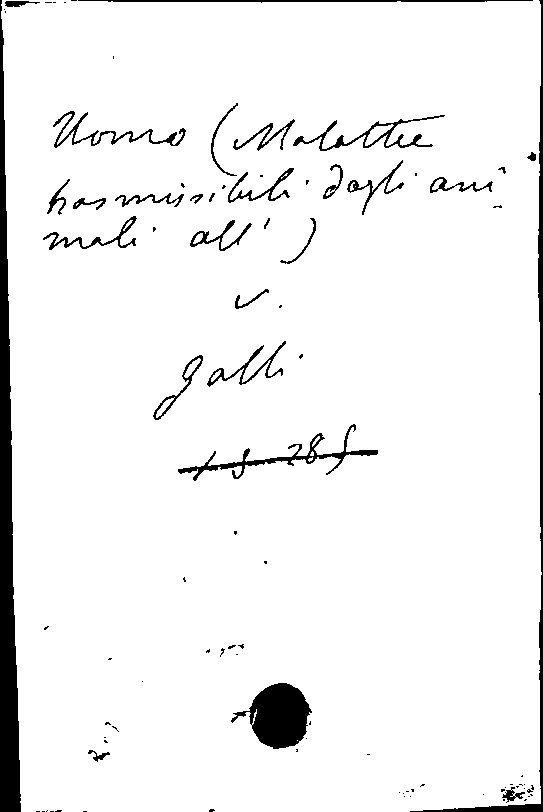 Uomo (Malattie
trasmissibili dagli ani-
mali all')
v.
Galli